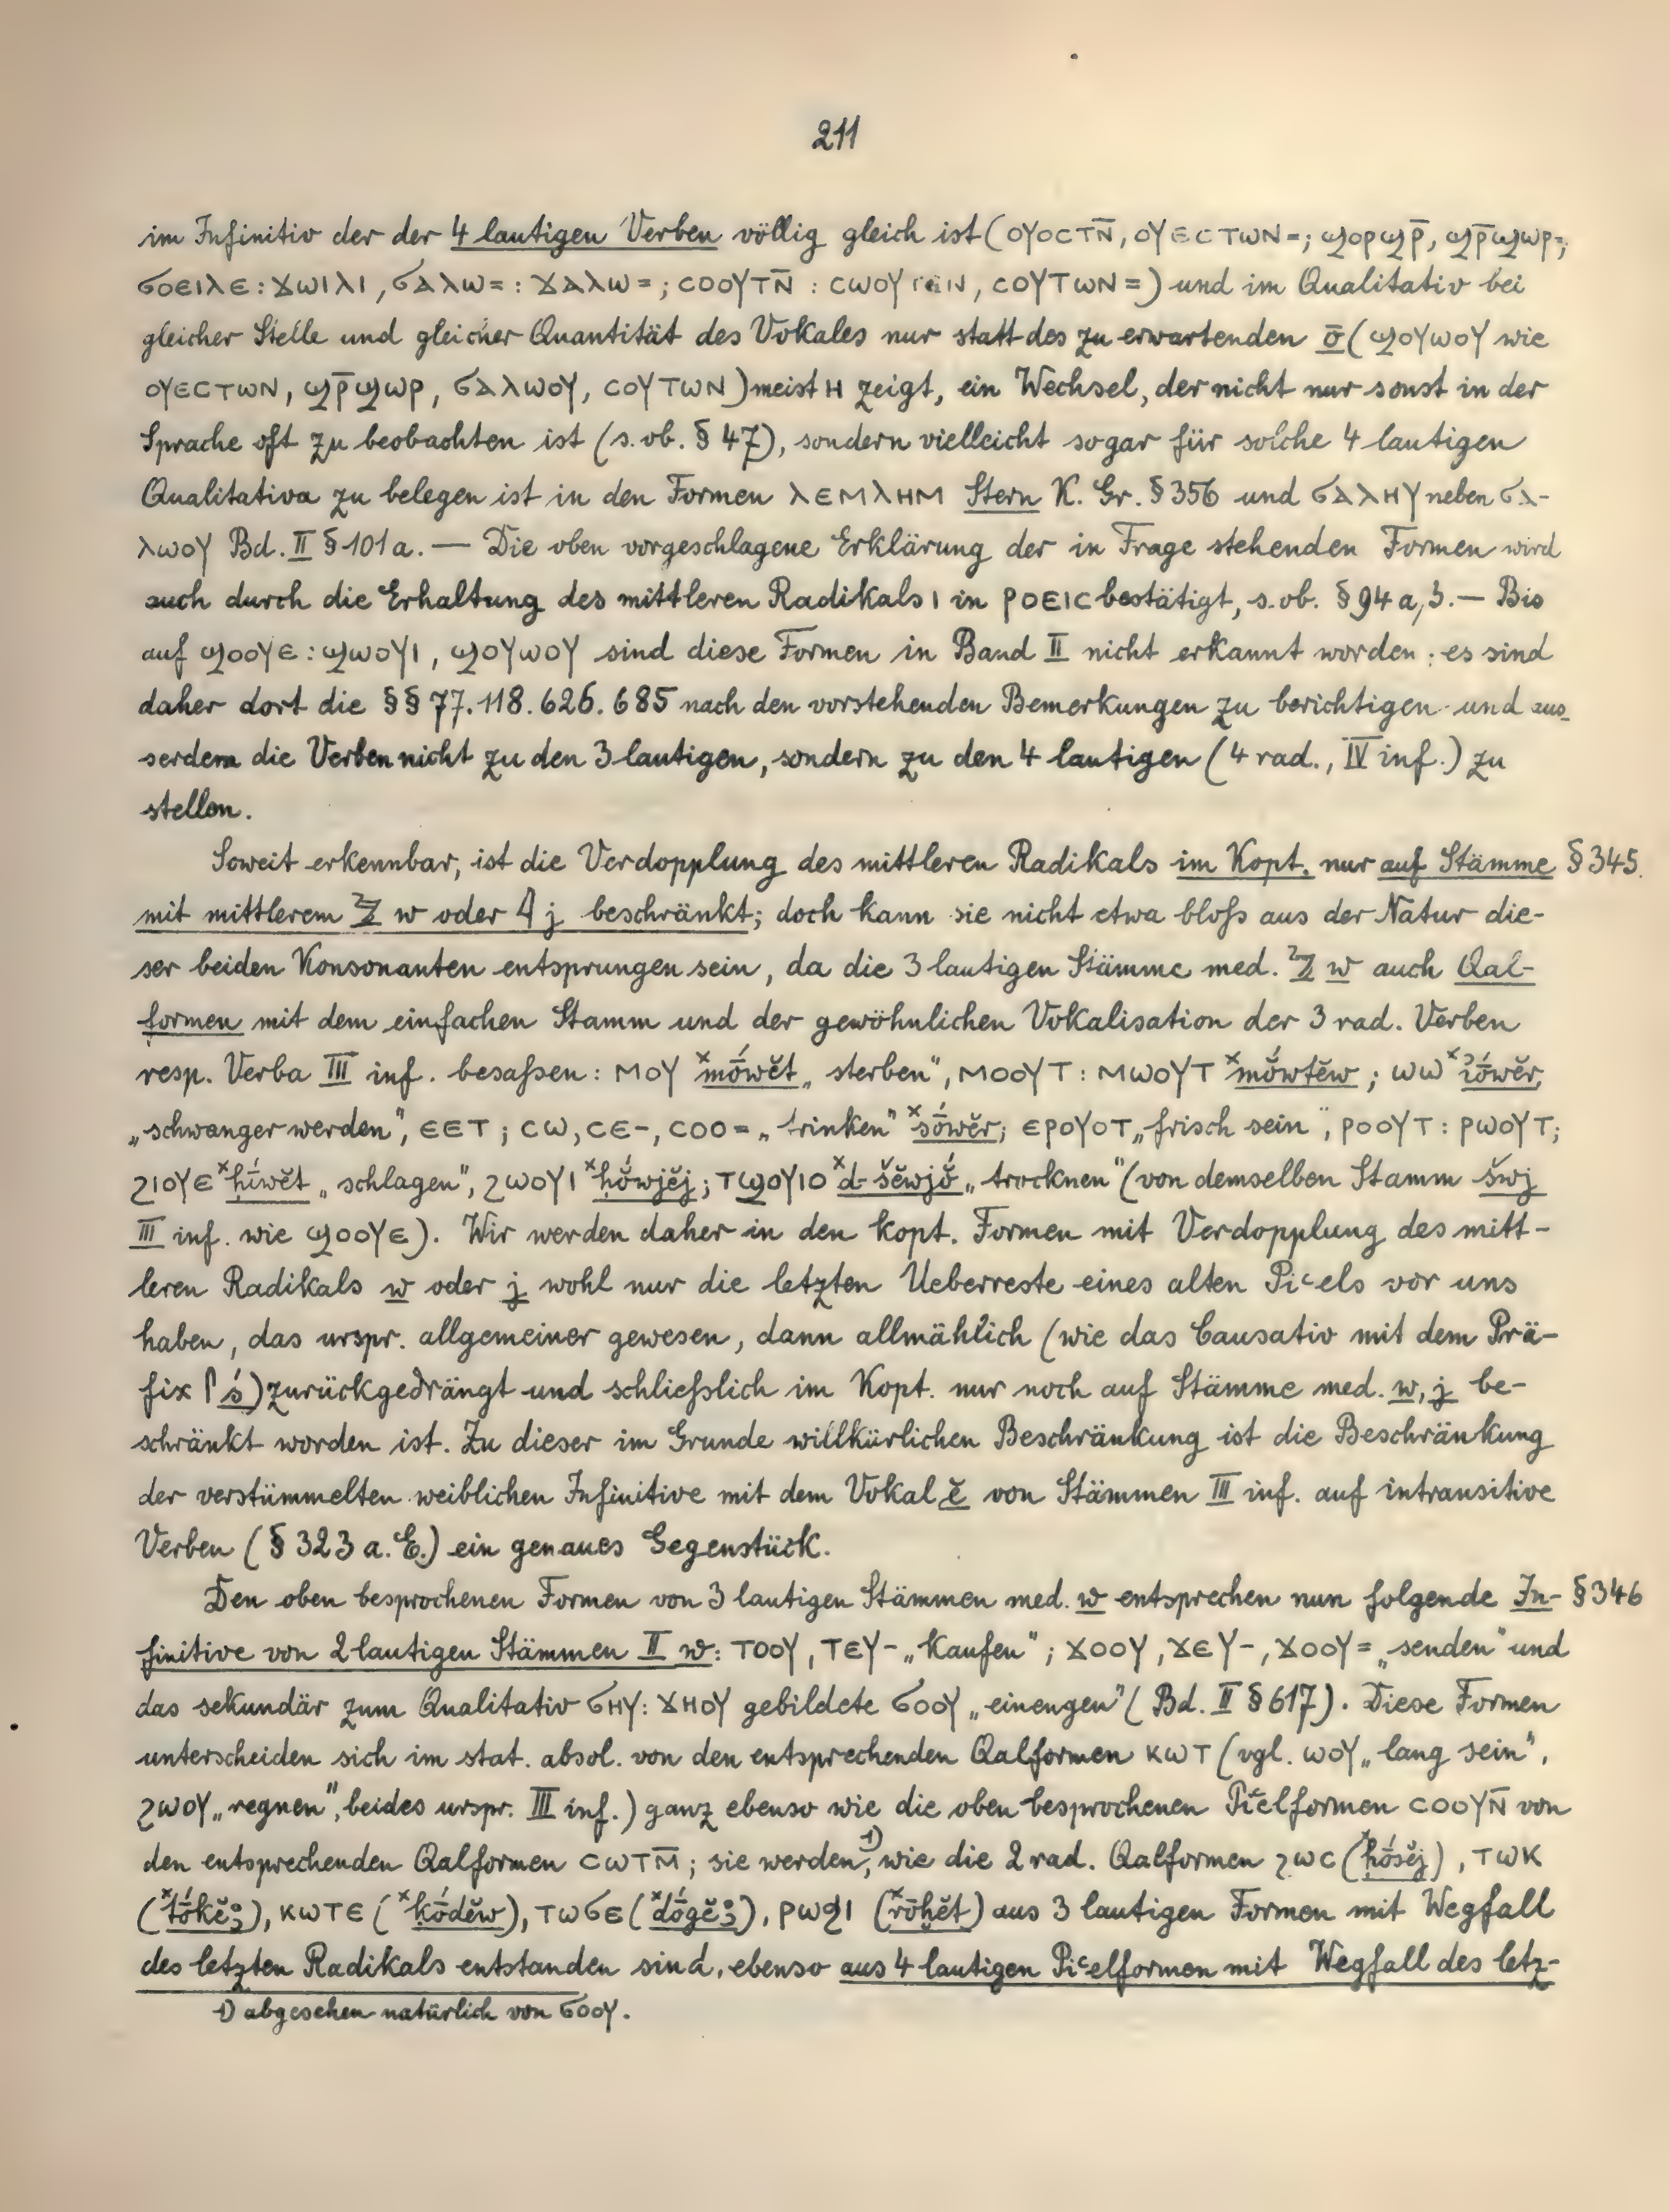 211
im Infinitiv der der 4 lautigen Verben völlig gleich ist (ⲟⲩⲟⲥⲧⲛ̄, ⲟⲩⲉⲥⲧⲱⲛ=; ϣⲟⲣϣⲣ̄, ϣⲣ̄ϣⲱⲣ=,
ϭⲟⲉⲓⲗⲉ : ϫⲱⲓⲗⲓ, ϭⲁⲗⲱ= : ϫⲁⲗⲱ= ; ⲥⲟⲟⲩⲧⲛ̄ : ⲥⲱⲟⲩⲧⲉⲛ, ⲥⲟⲩⲧⲱⲛ=) und im Qualitativ bei
gleicher Stelle und gleicher Quantität des Vokales nur statt des zu erwartenden ō (ϣⲟⲩⲱⲟⲩ wie
ⲟⲩⲉⲥⲧⲱⲛ, ϣⲣ̄ϣⲱⲣ, ϭⲁⲗⲱⲟⲩ, ⲥⲟⲩⲧⲱⲛ) meist ⲏ zeigt, ein Wechsel, der nicht nur sonst in der
Sprache oft zu beobachten ist (s. ob. § 47), sondern vielleicht sogar für solche 4 lautigen
Qualitativa zu belegen ist in den Formen ⲗⲉⲙⲗⲏⲙ Stern K. Gr. § 356 und ϭⲁⲗⲏⲩ neben ϭⲁ-
ⲗⲱⲟⲩ Bd. II § 101a. — Die oben vorgeschlagene Erklärung der in Frage stehenden Formen wird
auch durch die Erhaltung des mittleren Radikals ⲓ in ⲣⲟⲉⲓⲥ bestätigt, s. ob. § 94 a, 3. — Bis
auf ϣⲟⲟⲩⲉ : ϣⲱⲟⲩⲓ, ϣⲟⲩⲱⲟⲩ sind diese Formen in Band II nicht erkannt worden; es sind
daher dort die §§ 77. 118. 626. 685 nach den vorstehenden Bemerkungen zu berichtigen und aus-
serdem die Verben nicht zu den 3 lautigen, sondern zu den 4 lautigen (4 rad., IV inf.) zu
stellen.
Soweit erkennbar, ist die Verdopplung des mittleren Radikals im Kopt. nur auf Stämme § 345.
mit mittlerem w oder j beschränkt; doch kann sie nicht etwa bloſs aus der Natur die-
ser beiden Konsonanten entsprungen sein, da die 3 lautigen Stämme med. w auch Qal-
formen mit dem einfachen Stamm und der gewöhnlichen Vokalisation der 3 rad. Verben
resp. Verba III inf. besaſsen: ⲙⲟⲩ ˣmṓwĕt „sterben", ⲙⲟⲟⲩⲧ : ⲙⲱⲟⲩⲧ ˣmŏ́wtĕw; ⲱⲱ ˣꜣṓwĕr,
„schwanger werden", ⲉⲉⲧ; ⲥⲱ, ⲥⲉ-, ⲥⲟⲟ= „trinken" ˣsṓwĕr; ⲉⲣⲟⲩⲟⲧ „frisch sein", ⲣⲟⲟⲩⲧ : ⲣⲱⲟⲩⲧ;
ϩⲓⲟⲩⲉ ˣḥī́wĕt „schlagen", ϩⲱⲟⲩⲓ ˣḥŏ́wjĕj; ⲧϣⲟⲩⲓⲟ ˣd-šĕwjŏ́ „trocknen" (von demselben Stamm šwj
III inf. wie ϣⲟⲟⲩⲉ). Wir werden daher in den kopt. Formen mit Verdopplung des mitt-
leren Radikals w oder j wohl nur die letzten Ueberreste eines alten Piʿels vor uns
haben, das urspr. allgemeiner gewesen, dann allmählich (wie das Causativ mit dem Prä-
fix 𓋴 ś) zurückgedrängt und schlieſslich im Kopt. nur noch auf Stämme med. w, j be-
schränkt worden ist. Zu dieser im Grunde willkürlichen Beschränkung ist die Beschränkung
der verstümmelten weiblichen Infinitive mit dem Vokal ĕ von Stämmen III inf. auf intransitive
Verben (§ 323 a. E.) ein genaues Gegenstück.
Den oben besprochenen Formen von 3 lautigen Stämmen med. w entsprechen nun folgende In- § 346
finitive von 2 lautigen Stämmen II w: ⲧⲟⲟⲩ, ⲧⲉⲩ- „kaufen"; ϫⲟⲟⲩ, ϫⲉⲩ-, ϫⲟⲟⲩ= „senden" und
das sekundär zum Qualitativ ϭⲏⲩ : ϫⲏⲟⲩ gebildete ϭⲟⲟⲩ „einengen" (Bd. II § 617). Diese Formen
unterscheiden sich im stat. absol. von den entsprechenden Qalformen ⲕⲱⲧ (vgl. ⲱⲟⲩ „lang sein",
ϩⲱⲟⲩ „regnen", beides urspr. III inf.) ganz ebenso wie die oben besprochenen Piʿelformen ⲥⲟⲟⲩⲛ̄ von
den entsprechenden Qalformen ⲥⲱⲧⲙ̄; sie werden,¹⁾ wie die 2 rad. Qalformen ϩⲱⲥ (ˣḥṓsĕj), ⲧⲱⲕ
(ˣtṓkĕꜣ), ⲕⲱⲧⲉ (ˣḳṓdĕw), ⲧⲱϭⲉ (ˣdṓgĕꜣ), ⲣⲱϧⲓ (ˣrōḥĕt) aus 3 lautigen Formen mit Wegfall
des letzten Radikals entstanden sind, ebenso aus 4 lautigen Piʿelformen mit Wegfall des letz-
1) abgesehen natürlich von ϭⲟⲟⲩ.